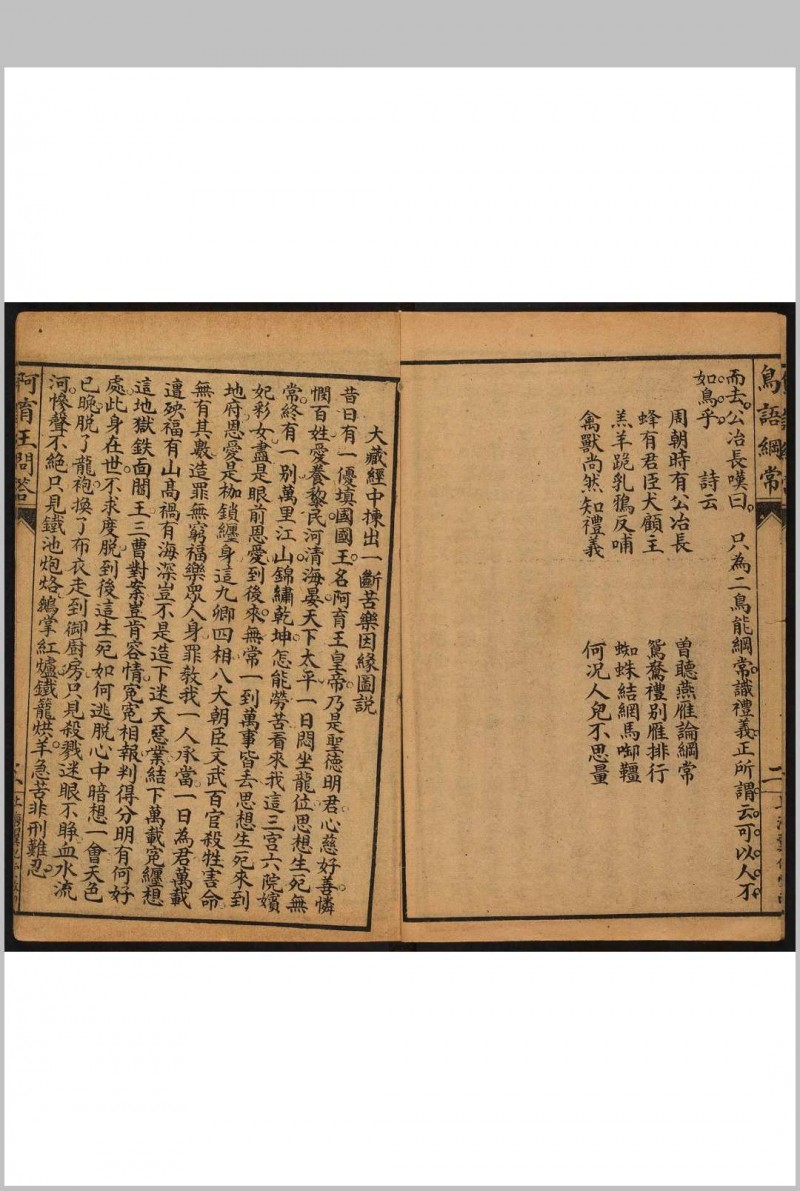 鳥語綱常
而去。公冶長嘆曰。 只為二鳥能綱常。識禮義。正所謂云。可以人不
如鳥乎 詩云
周朝時有公冶長 曾聽燕雁論綱常
蜂有君臣犬顧主 鴛鴦禮別雁排行
羔羊跪乳鴉反哺 蜘蛛結網馬啣韁
禽獸尚然知禮義 何況人兒不思量
大藏經中揀出一斷苦樂因緣圖説
昔日有一優填國國王名阿育王皇帝乃是聖德明君心慈好善憐
憫百姓愛養黎民河清海晏天下太平一日悶坐龍位思想生死無
常終有一別萬里江山錦繡乾坤怎能勞苦看來我這三宮六院嬪
妃彩女盡是眼前恩愛到後來無常一到萬事皆丢思想生死來到
地府恩愛是枷鎖纏身這九卿四相八大朝臣文武百官殺牲害命
無有其數造罪無窮福樂眾人身罪教我一人承當一日為君萬載
遭殃福有山高禍有海深豈不是造下迷天惡業結下萬載冤纏想
這地獄鉄面閻王三曹對案豈肯容情冤冤相報判得分明有何好
處此身在世不求度脱到後這生死如何逃脱心中暗想一會天色
已晚脱了龍袍換了布衣走到御厨房只見殺戮迷眼不睁血水流
河慘聲不絶只見鐵池炮烙鵝掌紅爐鐵籠烘羊急苦非刑難忍
阿育王問答